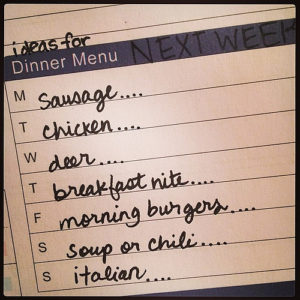 ideas for
Dinner Menu NEXT WEEK
M sausage....
T chicken....
W deer....
T breakfast nite....
F morning burgers....
S soup or chili....
S italian....